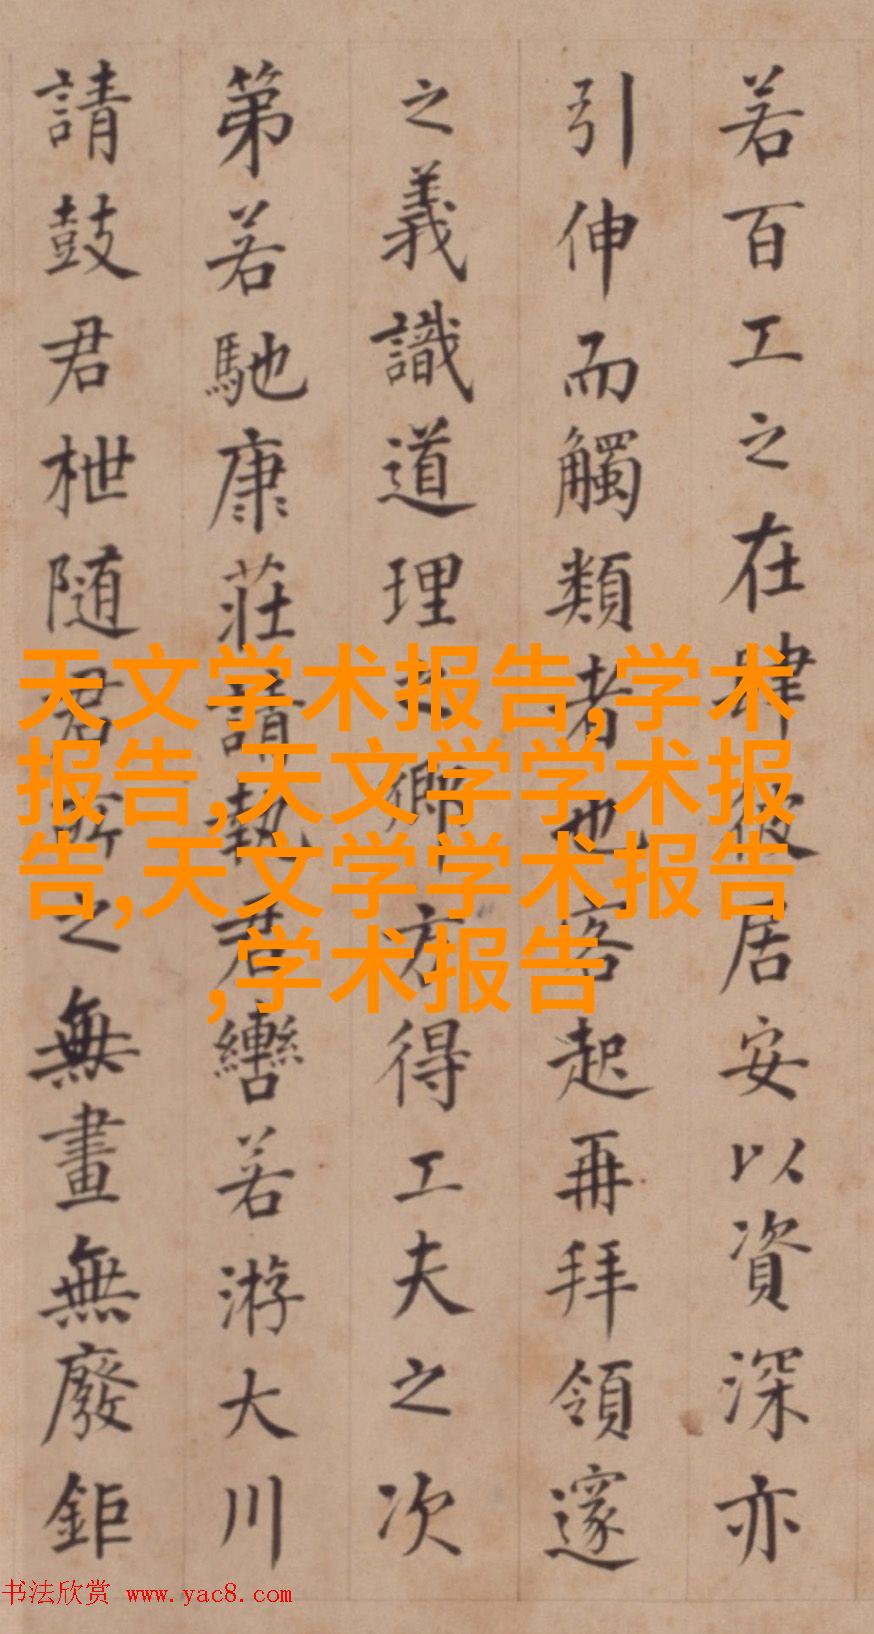 若百工之在肆彼居安以資深亦
引伸而觸類者也客起再拜領邃
之義識道理之歸右得工夫之次
第若馳康莊請執君轡若游大川
請鼓君枻随君所之無畫無廢鉅
天文学术报告,学术
报告,天文学学术报
告,天文学学术报告
,学术报告
书法欣赏 www.yac8.com